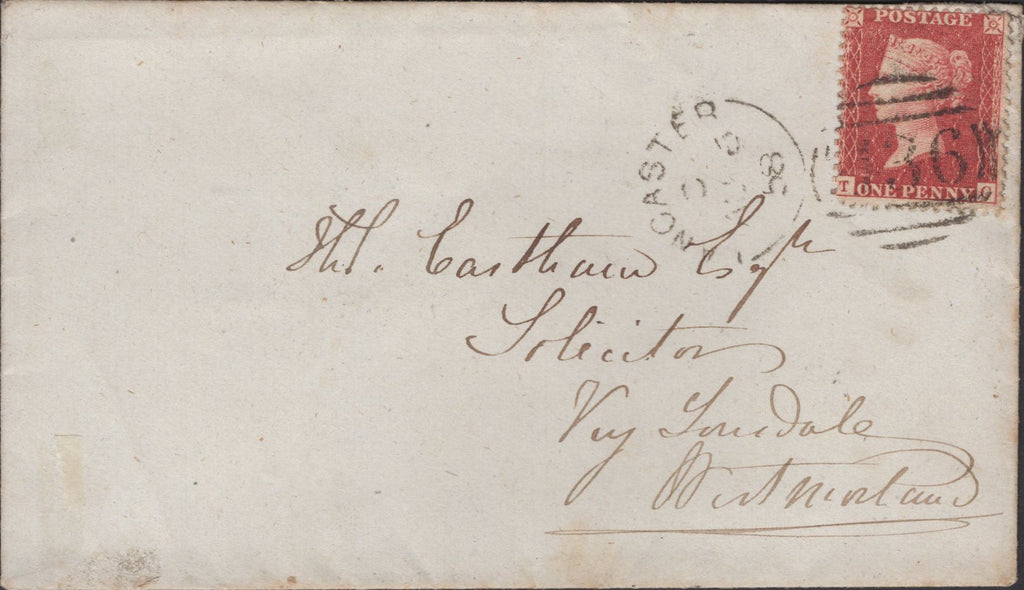 POSTAGE
T ONE PENNY G
NCASTER
58
Thos. Eastham Esqr
Solicitor
Kiry Lonsdale
Westmorland